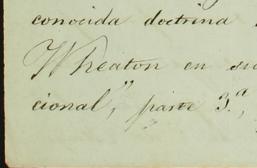 conocida doctrina
Wheaton en su
cional", parte 3.ª,